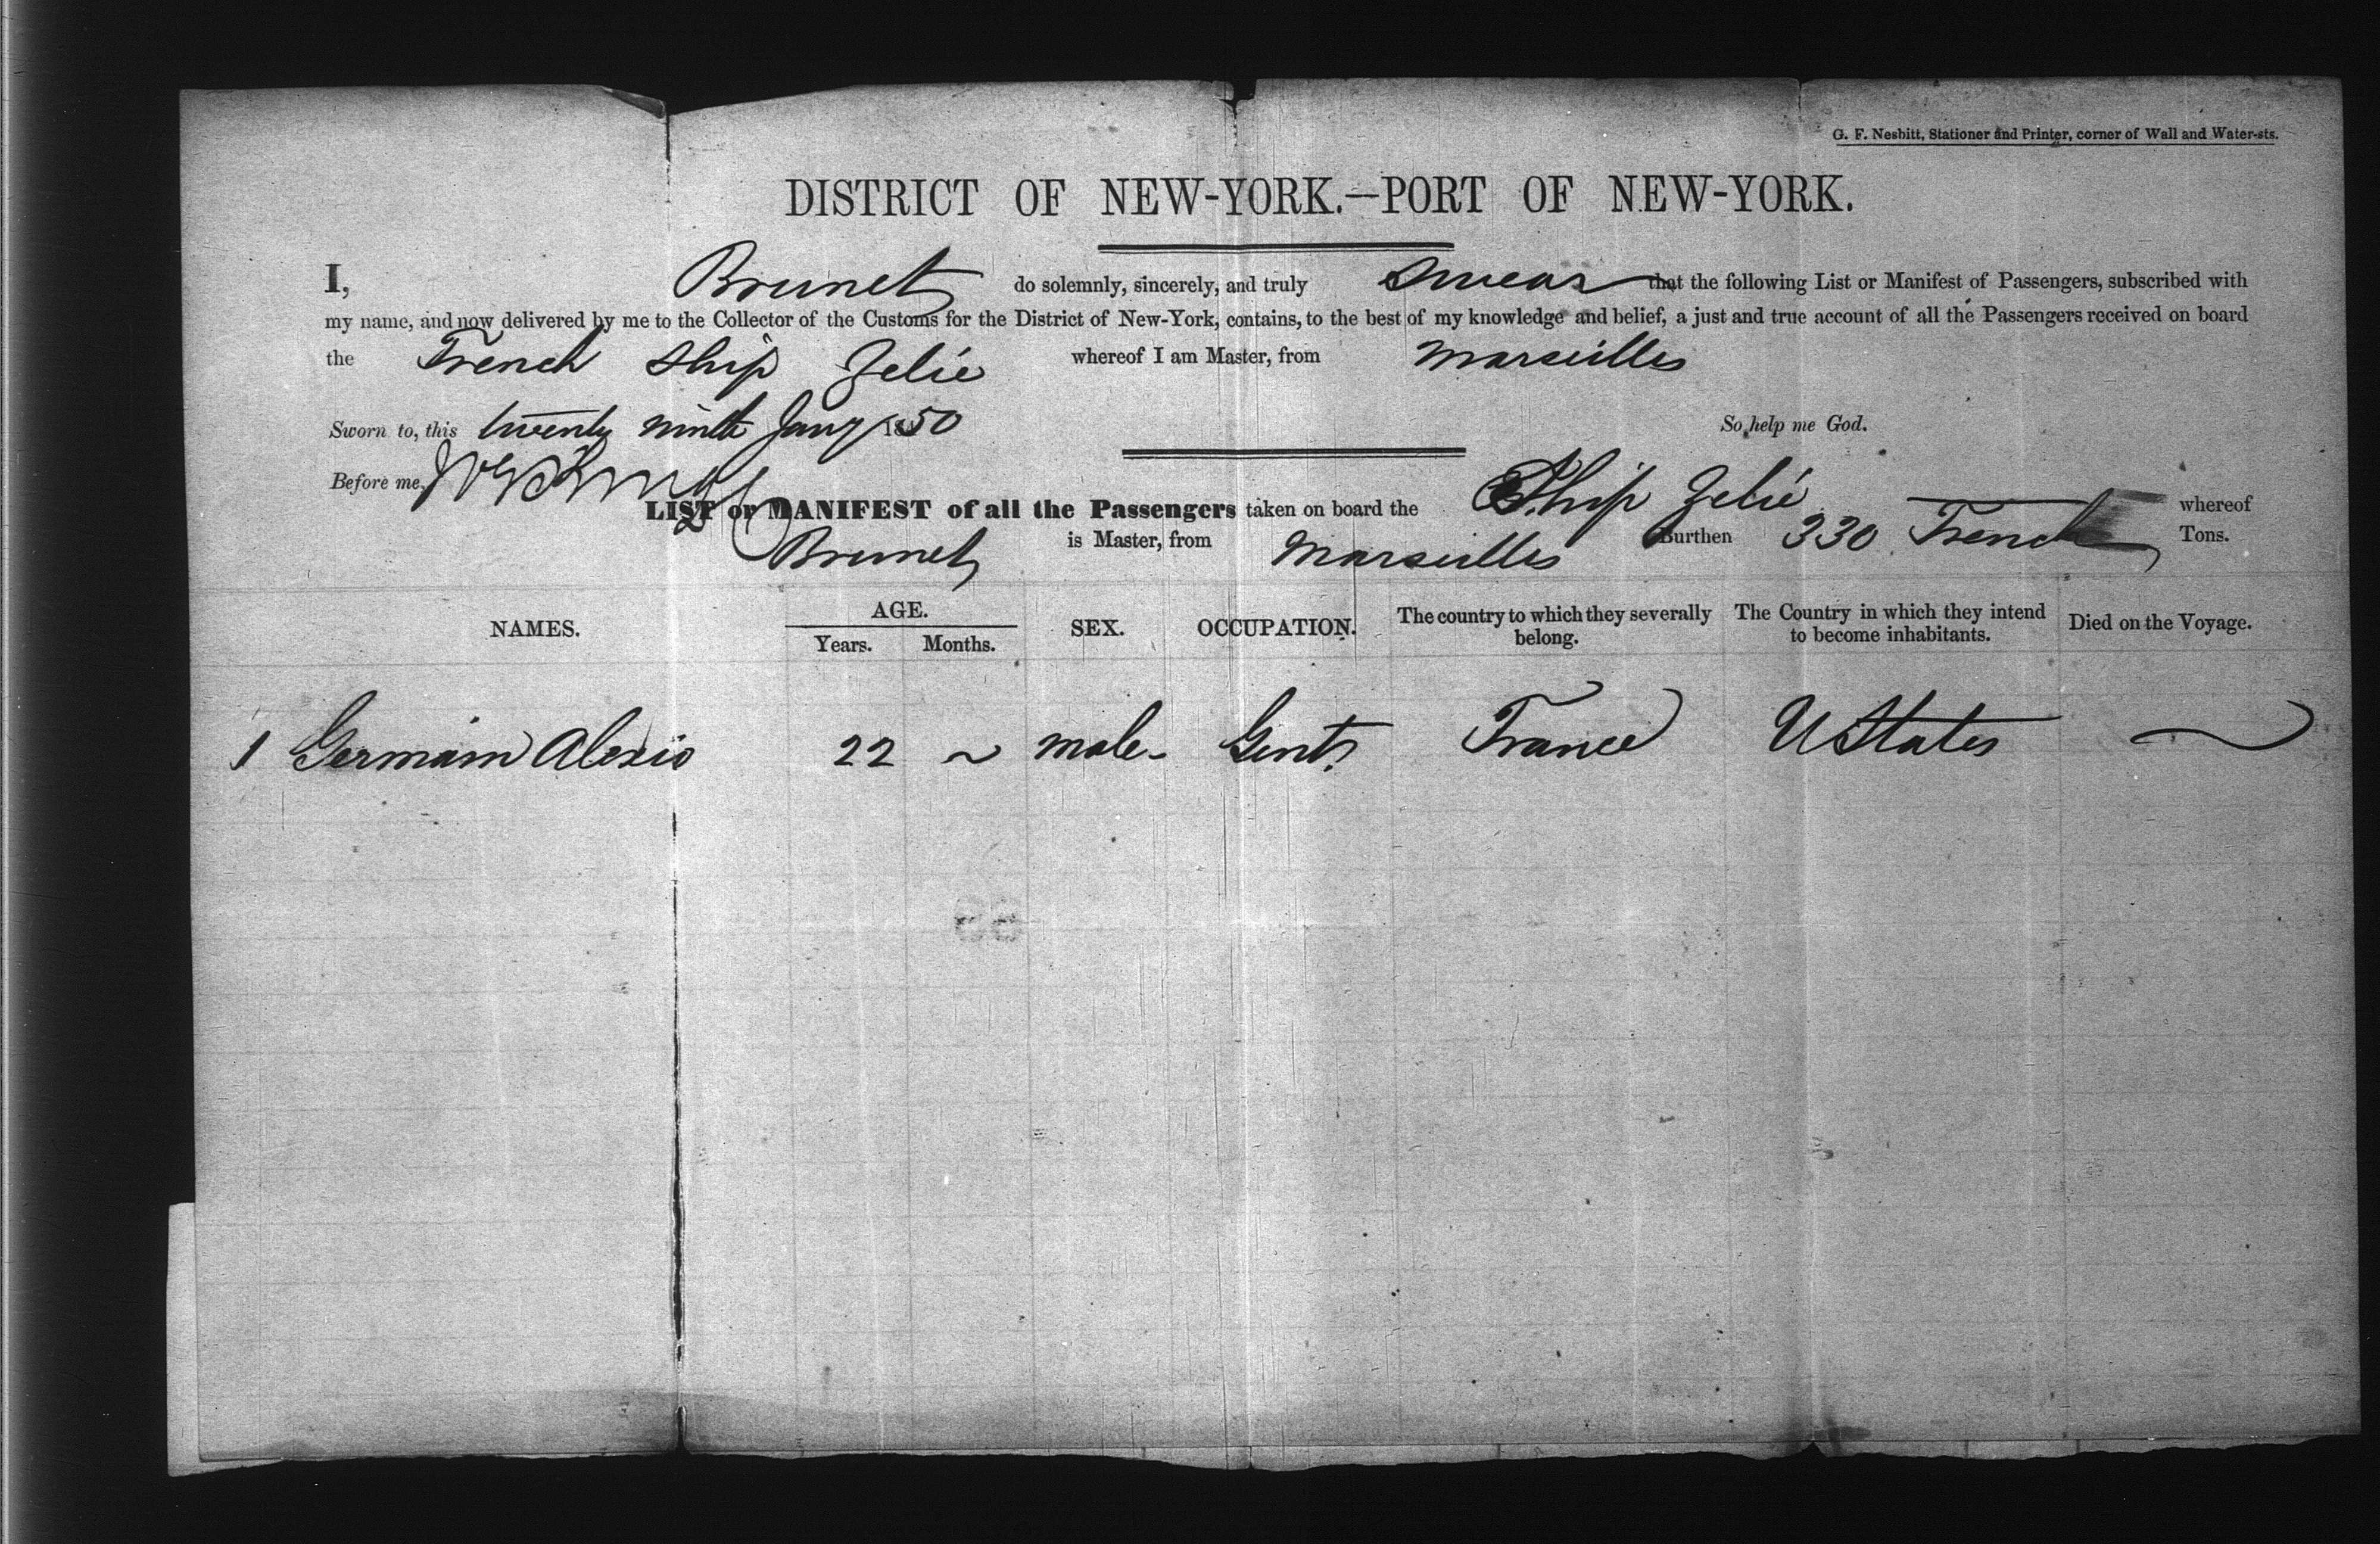 G. F. Nesbitt, Stationer and Printer, corner of Wall and Water-sts.
DISTRICT OF NEW-YORK.—PORT OF NEW-YORK.
I, Brunet do solemnly, sincerely, and truly Swear that the following List or Manifest of Passengers, subscribed with
my name, and now delivered by me to the Collector of the Customs for the District of New-York, contains, to the best of my knowledge and belief, a just and true account of all the Passengers received on board
the French Ship Zelie whereof I am Master, from Marseilles
Sworn to, this twenty ninth Jany 1850 So help me God.
Before me,
LIST or MANIFEST of all the Passengers taken on board the Ship Zelie whereof
Brunet is Master, from Marseilles Burthen 330 French Tons.
NAMES. AGE. SEX. OCCUPATION. The country to which they severally belong. The Country in which they intend to become inhabitants. Died on the Voyage.
Years. Months.
1 Germain Alexis 22 ~ male - Gent. France U States ~